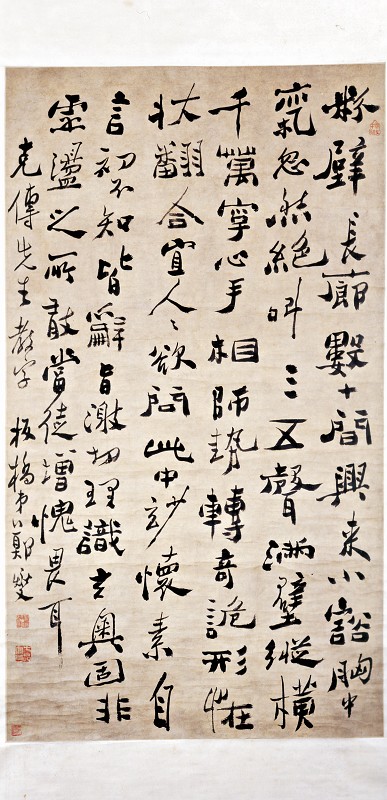 粉壁長廊數十間興來小豁胸中
氣忽然絕叫三五聲滿壁縱橫
千萬字心手相師勢轉奇詭形恠
狀翻合宜人〻欲問此中妙懷素自
言初不知皆辭旨激切理識玄奧固非
虛盪之所敢當徒增愧畏耳
克傳先生教 板橋弟鄭燮